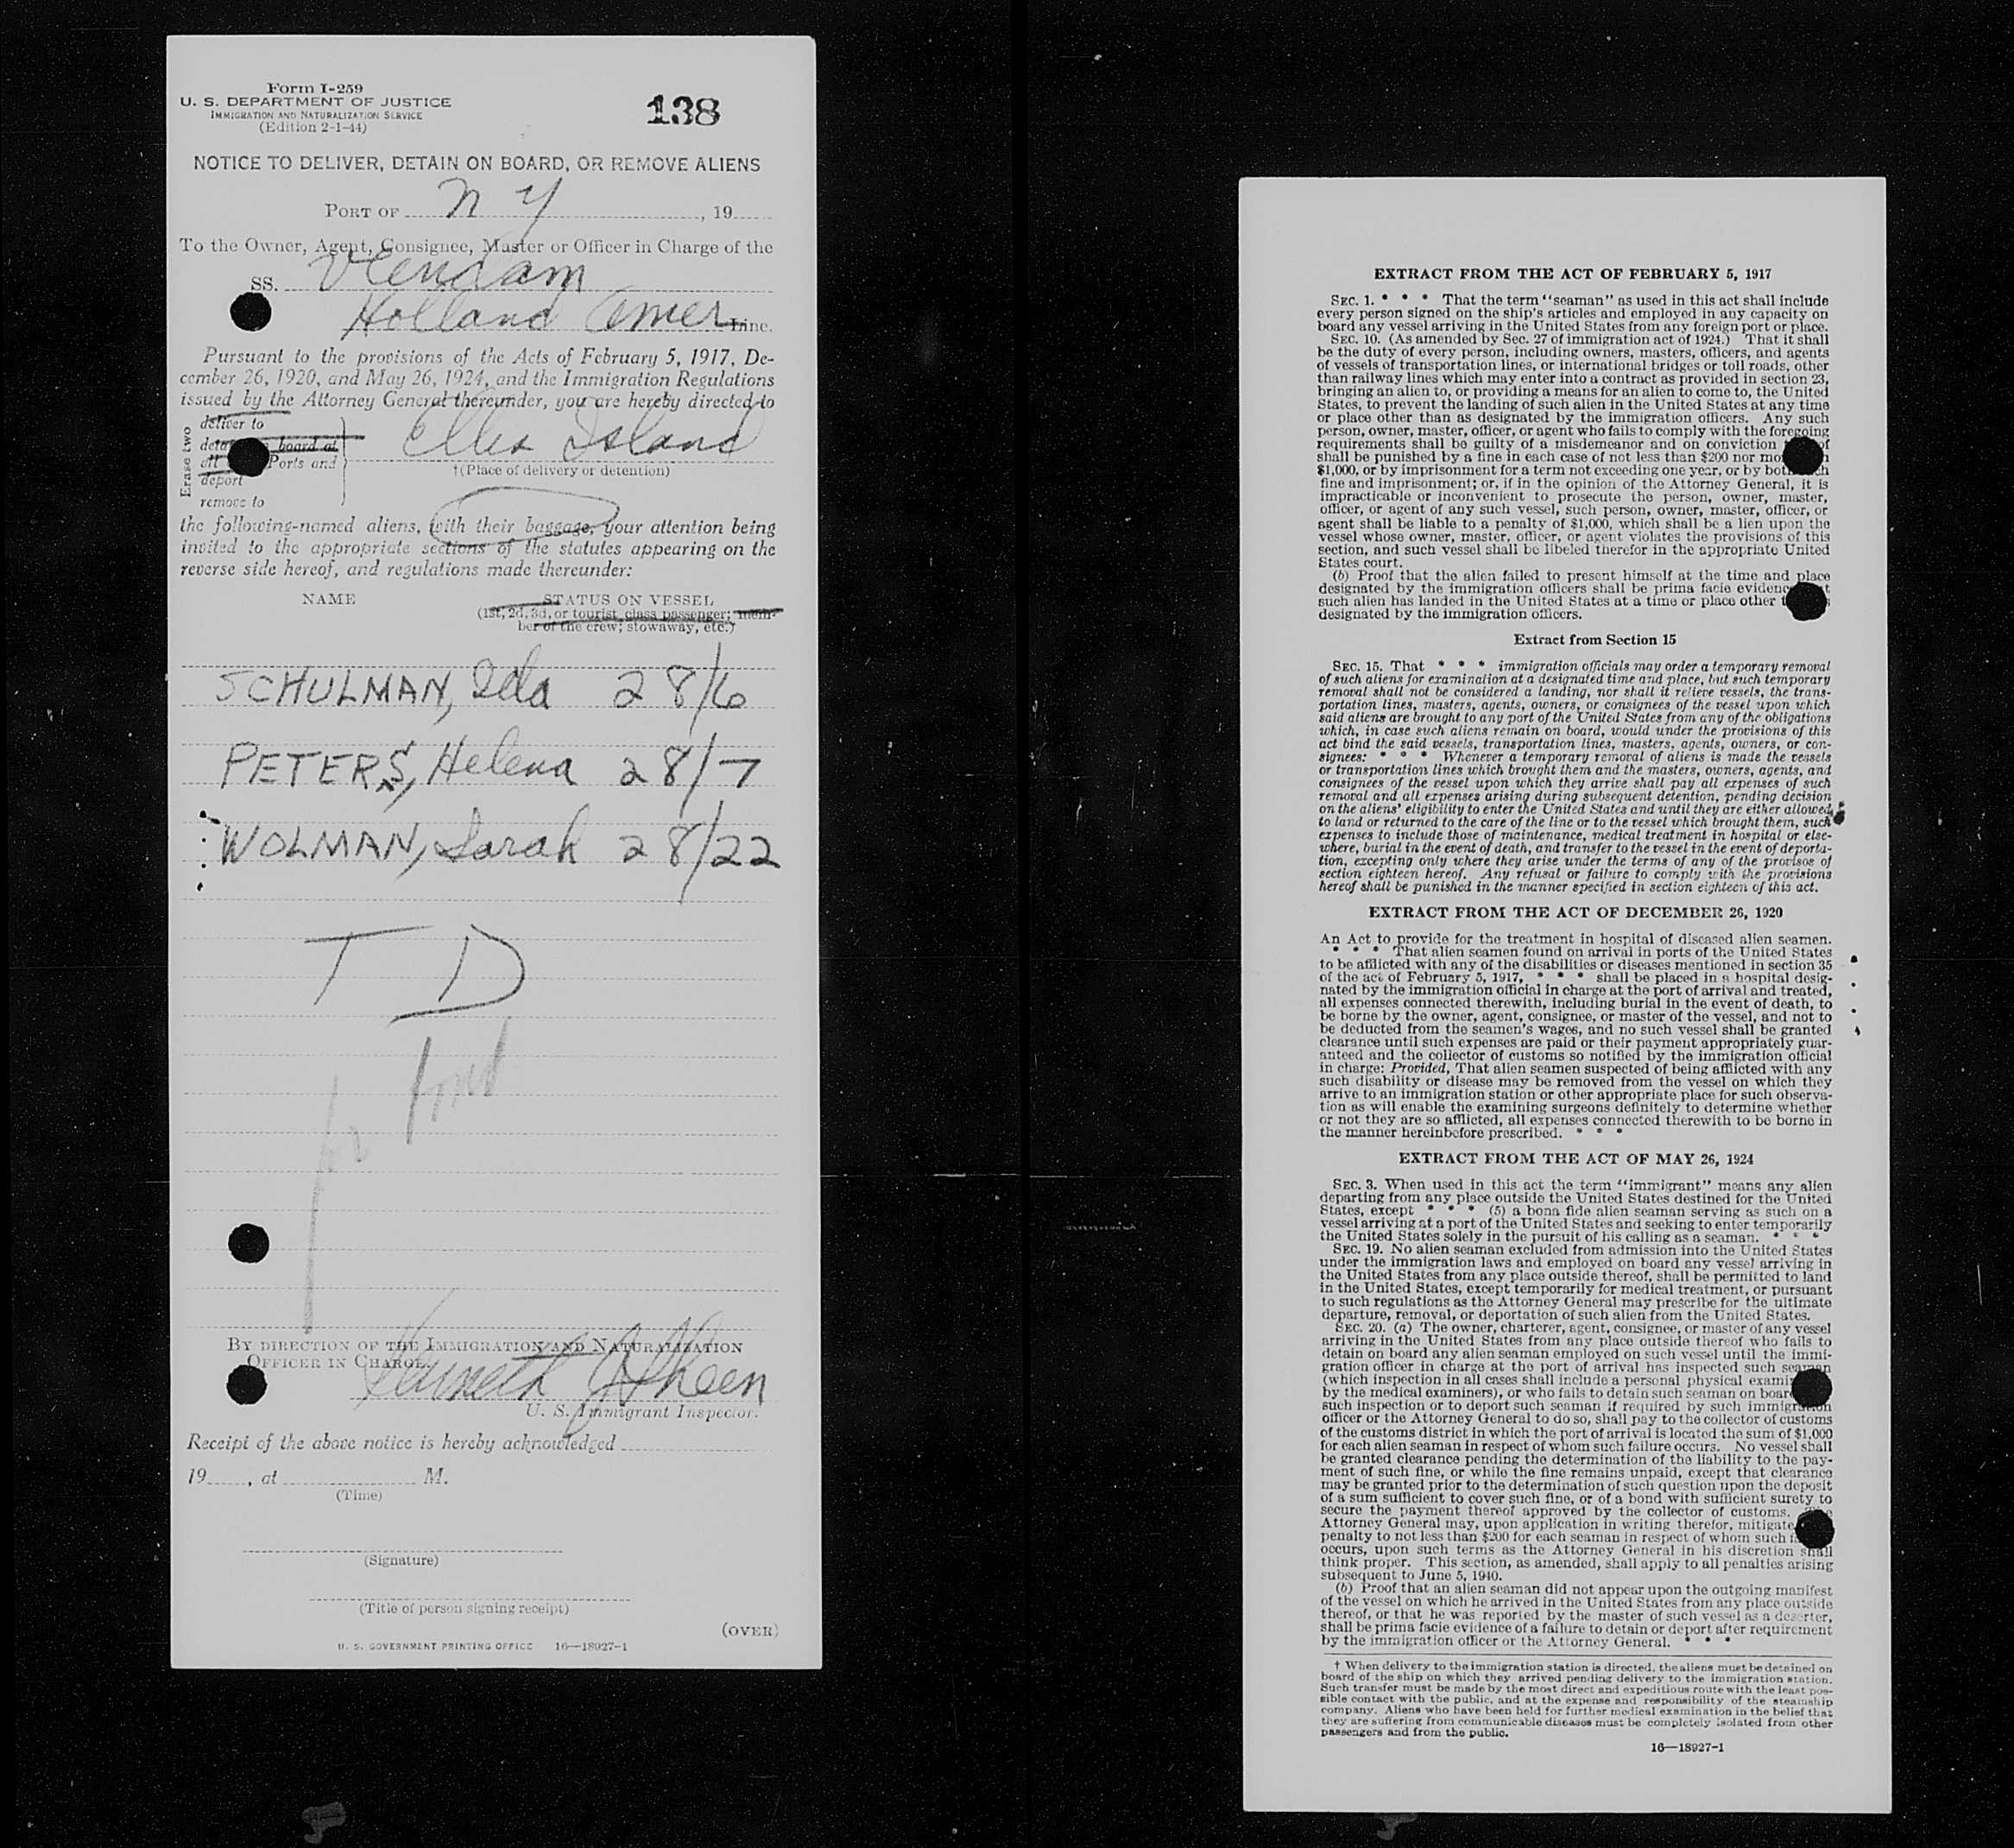 Form I-259
U. S. DEPARTMENT OF JUSTICE
IMMIGRATION AND NATURALIZATION SERVICE
(Edition 2-1-44)
138
NOTICE TO DELIVER, DETAIN ON BOARD, OR REMOVE ALIENS
PORT OF N Y, 19
To the Owner, Agent, Consignee, Master or Officer in Charge of the
SS. Veendam
Holland Amer Line.
Pursuant to the provisions of the Acts of February 5, 1917, De-
cember 26, 1920, and May 26, 1924, and the Immigration Regulations
issued by the Attorney General thereunder, you are hereby directed to
Erase two
deliver to
board at
Ports and
deport
remove to
Ellis Island
†(Place of delivery or detention)
the following-named aliens, with their baggage, your attention being
invited to the appropriate sections of the statutes appearing on the
reverse side hereof, and regulations made thereunder:
NAME STATUS ON VESSEL
(1st, 2d, 3d, or tourist class passenger; mem-
ber of the crew; stowaway, etc.)
SCHULMAN, Ida 28/6
PETERS, Helena 28/7
WOLMAN, Sarah 28/22
T D
BY DIRECTION OF THE IMMIGRATION AND NATURALIZATION
OFFICER IN CHARGE.
Kenneth
U. S. Immigrant Inspector.
Receipt of the above notice is hereby acknowledged
19, at M.
(Time)
(Signature)
(Title of person signing receipt)
(OVER)
U. S. GOVERNMENT PRINTING OFFICE 16—18927-1
EXTRACT FROM THE ACT OF FEBRUARY 5, 1917
SEC. 1. * * * That the term "seaman" as used in this act shall include
every person signed on the ship's articles and employed in any capacity on
board any vessel arriving in the United States from any foreign port or place.
SEC. 10. (As amended by Sec. 27 of immigration act of 1924.) That it shall
be the duty of every person, including owners, masters, officers, and agents
of vessels of transportation lines, or international bridges or toll roads, other
than railway lines which may enter into a contract as provided in section 23,
bringing an alien to, or providing a means for an alien to come to, the United
States, to prevent the landing of such alien in the United States at any time
or place other than as designated by the immigration officers. Any such
person, owner, master, officer, or agent who fails to comply with the foregoing
requirements shall be guilty of a misdemeanor and on conviction of
shall be punished by a fine in each case of not less than $200 nor
$1,000, or by imprisonment for a term not exceeding one year, or by
fine and imprisonment; or, if in the opinion of the Attorney General, it is
impracticable or inconvenient to prosecute the person, owner, master,
officer, or agent of any such vessel, such person, owner, master, officer, or
agent shall be liable to a penalty of $1,000, which shall be a lien upon the
vessel whose owner, master, officer, or agent violates the provisions of this
section, and such vessel shall be libeled therefor in the appropriate United
States court.
(b) Proof that the alien failed to present himself at the time and place
designated by the immigration officers shall be prima facie
such alien has landed in the United States at a time or place other
designated by the immigration officers.
Extract from Section 15
SEC. 15. That * * * immigration officials may order a temporary removal
of such aliens for examination at a designated time and place, but such temporary
removal shall not be considered a landing, nor shall it relieve vessels, the trans-
portation lines, masters, agents, owners, or consignees of the vessel upon which
said aliens are brought to any port of the United States from any of the obligations
which, in case such aliens remain on board, would under the provisions of this
act bind the said vessels, transportation lines, masters, agents, owners, or con-
signees: * * * Whenever a temporary removal of aliens is made the vessels
or transportation lines which brought them and the masters, owners, agents, and
consignees of the vessel upon which they arrive shall pay all expenses of such
removal and all expenses arising during subsequent detention, pending decision
on the aliens' eligibility to enter the United States and until they are either allowed
to land or returned to the care of the line or to the vessel which brought them, such
expenses to include those of maintenance, medical treatment in hospital or else-
where, burial in the event of death, and transfer to the vessel in the event of deporta-
tion, excepting only where they arise under the terms of any of the provisos of
section eighteen hereof. Any refusal or failure to comply with the provisions
hereof shall be punished in the manner specified in section eighteen of this act.
EXTRACT FROM THE ACT OF DECEMBER 26, 1920
An Act to provide for the treatment in hospital of diseased alien seamen.
* * * That alien seamen found on arrival in ports of the United States
to be afflicted with any of the disabilities or diseases mentioned in section 35
of the act of February 5, 1917, * * * shall be placed in a hospital desig-
nated by the immigration official in charge at the port of arrival and treated,
all expenses connected therewith, including burial in the event of death, to
be borne by the owner, agent, consignee, or master of the vessel, and not to
be deducted from the seamen's wages, and no such vessel shall be granted
clearance until such expenses are paid or their payment appropriately guar-
anteed and the collector of customs so notified by the immigration official
in charge: Provided, That alien seamen suspected of being afflicted with any
such disability or disease may be removed from the vessel on which they
arrive to an immigration station or other appropriate place for such observa-
tion as will enable the examining surgeons definitely to determine whether
or not they are so afflicted, all expenses connected therewith to be borne in
the manner hereinbefore prescribed. * * *
EXTRACT FROM THE ACT OF MAY 26, 1924
SEC. 3. When used in this act the term "immigrant" means any alien
departing from any place outside the United States destined for the United
States, except * * * (5) a bona fide alien seaman serving as such on a
vessel arriving at a port of the United States and seeking to enter temporarily
the United States solely in the pursuit of his calling as a seaman. * * *
SEC. 19. No alien seaman excluded from admission into the United States
under the immigration laws and employed on board any vessel arriving in
the United States from any place outside thereof, shall be permitted to land
in the United States, except temporarily for medical treatment, or pursuant
to such regulations as the Attorney General may prescribe for the ultimate
departure, removal, or deportation of such alien from the United States.
SEC. 20. (a) The owner, charterer, agent, consignee, or master of any vessel
arriving in the United States from any place outside thereof who fails to
detain on board any alien seaman employed on such vessel until the immi-
gration officer in charge at the port of arrival has inspected such seaman
(which inspection in all cases shall include a personal physical
by the medical examiners), or who fails to detain such seaman on board
such inspection or to deport such seaman if required by such immigration
officer or the Attorney General to do so, shall pay to the collector of customs
of the customs district in which the port of arrival is located the sum of $1,000
for each alien seaman in respect of whom such failure occurs. No vessel shall
be granted clearance pending the determination of the liability to the pay-
ment of such fine, or while the fine remains unpaid, except that clearance
may be granted prior to the determination of such question upon the deposit
of a sum sufficient to cover such fine, or of a bond with sufficient surety to
secure the payment thereof approved by the collector of customs.
Attorney General may, upon application in writing therefor, mitigate
penalty to not less than $200 for each seaman in respect of whom such
occurs, upon such terms as the Attorney General in his discretion shall
think proper. This section, as amended, shall apply to all penalties arising
subsequent to June 5, 1940.
(b) Proof that an alien seaman did not appear upon the outgoing manifest
of the vessel on which he arrived in the United States from any place outside
thereof, or that he was reported by the master of such vessel as a deserter,
shall be prima facie evidence of a failure to detain or deport after requirement
by the immigration officer or the Attorney General. * * *
† When delivery to the immigration station is directed, the aliens must be detained on
board of the ship on which they arrived pending delivery to the immigration station.
Such transfer must be made by the most direct and expeditious route with the least pos-
sible contact with the public, and at the expense and responsibility of the steamship
company. Aliens who have been held for further medical examination in the belief that
they are suffering from communicable diseases must be completely isolated from other
passengers and from the public.
16—18927-1